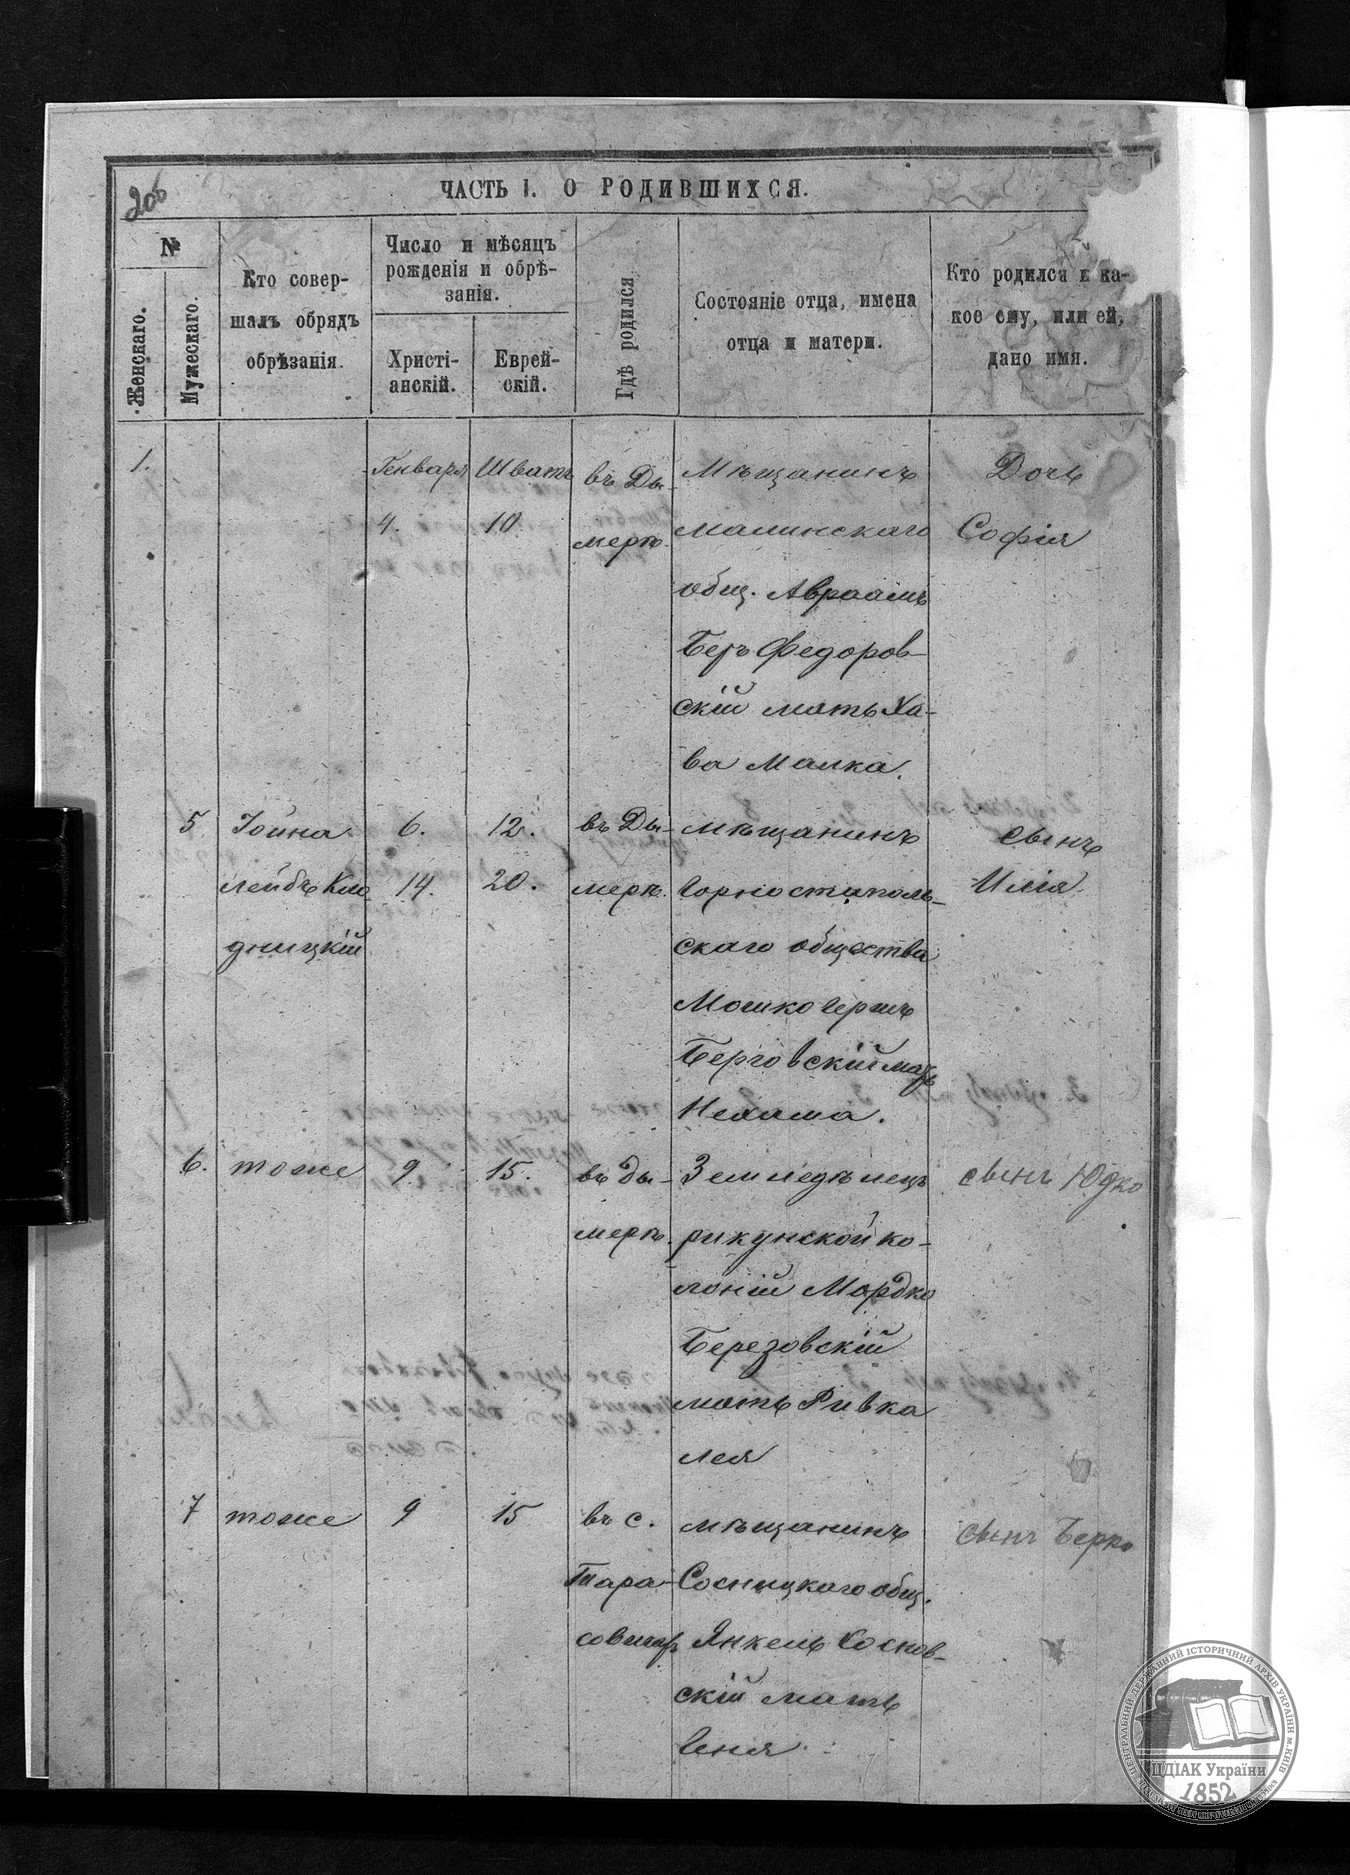 206
ЧАСТЬ I. О РОДИВШИХСЯ.
№
Женскаго.
Мужескаго.
Кто совер-
шалъ обрядъ
обрѣзанія.
Число и мѣсяцъ
рожденія и обрѣ-
занія.
Христі-
анскій.
Еврей-
скій.
Гдѣ родился
Состояніе отца, имена
отца и матери.
Кто родился и ка-
кое ему, или ей,
дано имя.
1.
Генваря
4.
Шватъ
10
въ Ды-
мерѣ.
Мѣщанинъ
Малинскаго
общ. Авраамъ
Беръ Федоров-
скій мать Ха-
ва Малка.
Дочь
Софія
5
Іойна
Лейбъ Кло
дницкій
6.
14.
12.
20.
въ Ды-
мерѣ.
мѣщанинъ
Горностаполь-
скаго общества
Мошко Гершъ
Берговскій мать
Нехама.
сынъ
Илія.
6.
тоже
9.
15.
въ Ды-
мерѣ.
Земледѣлецъ
рикунской ко-
лоніи Мордко
Березовскій
мать Ривка
Лея
сынъ Юдко
7
тоже
9
15
въ с.
Тара-
мѣщанинъ
Сосницкаго общ.
Янкель Соснов-
скій мать
сынъ Берко
ЦЕНТРАЛЬНИЙ ДЕРЖАВНИЙ ІСТОРИЧНИЙ АРХІВ УКРАЇНИ М. КИЇВ
ЦДІАК України
1852